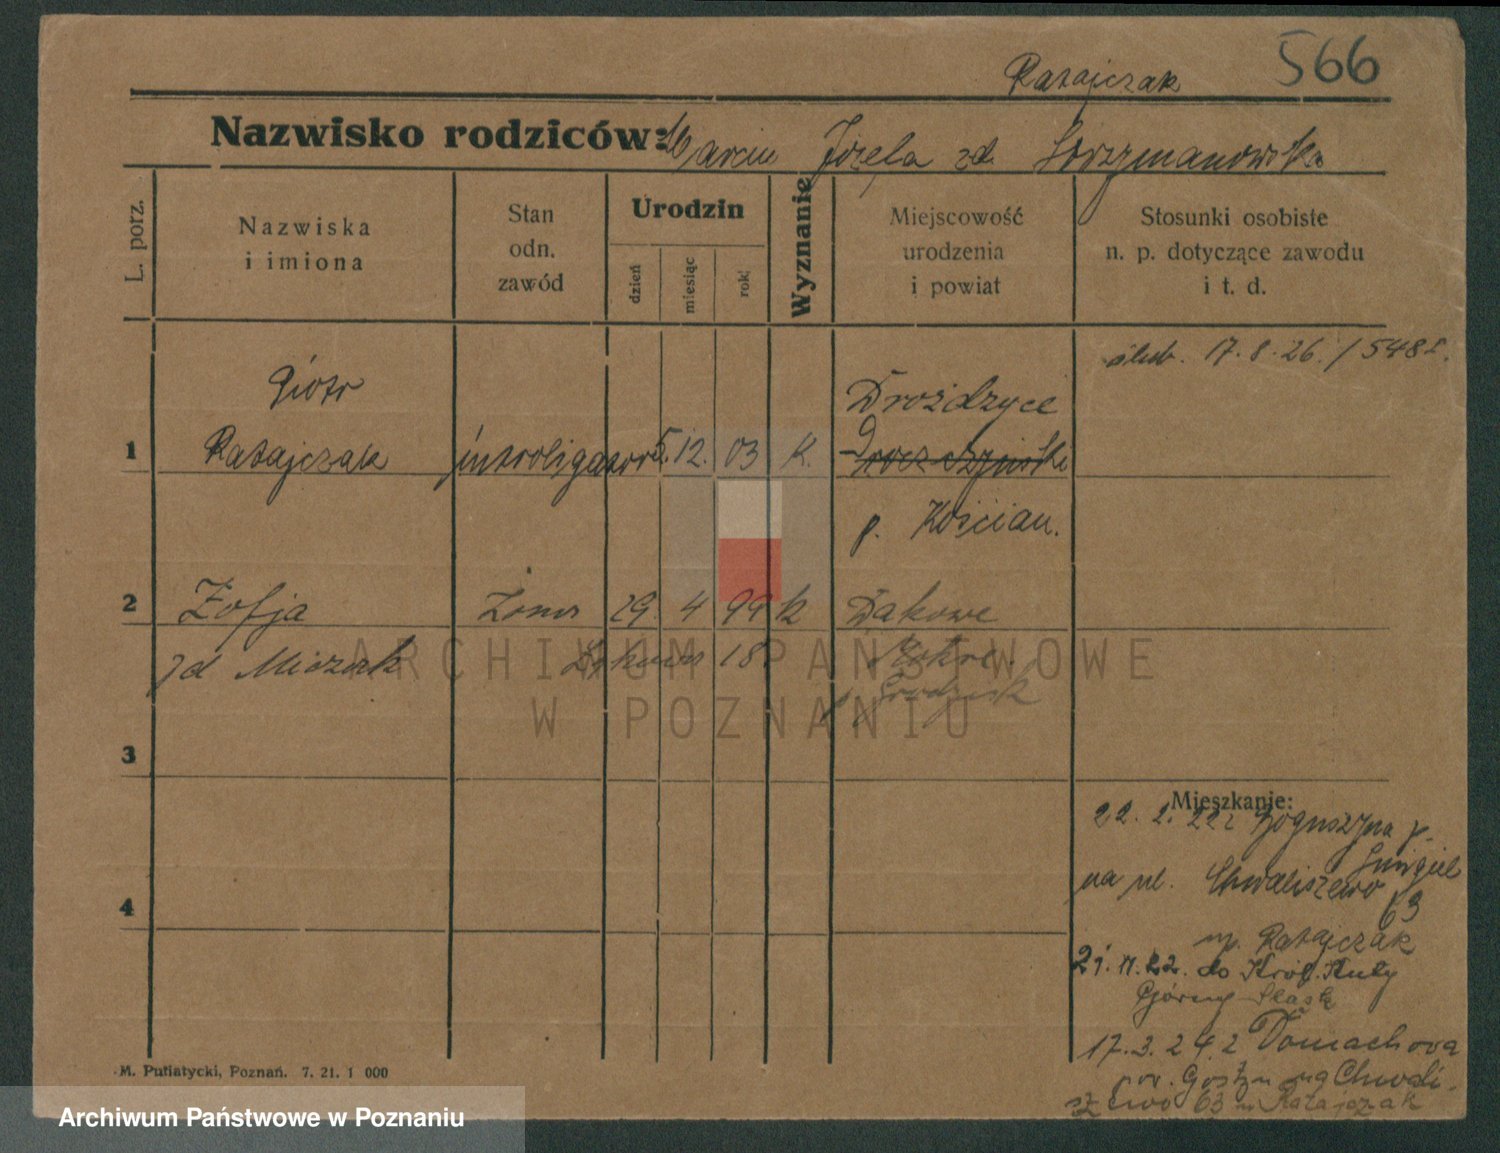 566
Ratajczak
Nazwisko rodziców: Marcin Józefa zd. Skrzymanowska
L. porz.
Nazwiska i imiona
Stan odn. zawód
Urodzin
dzień
miesiąc
rok
Wyznanie
Miejscowość urodzenia i powiat
Stosunki osobiste n. p. dotyczące zawodu i t. d.
ślub. 17.8.26. /548
Piotr
Drożdzyce
1 Ratajczak introligator 5. 12. 03 K.
p. Kościan.
2 Zofja żona 29. 4 99 k Dakowe
zd Miozek 18. Mokre.
p Grodzisk
3
Mieszkanie:
22. 2. 22 z Boguszyna p.
Śmigiel
na ul. Chwaliszewo
63
4
m. Ratajczak
21. 11. 22. do Król. Huty
Górny Śląsk
17. 3. 24. z Domachowa
pow. Gostyn na Chwali-
szewo 63 m Ratajczak
M. Putiatycki, Poznań. 7. 21. 1 000
ARCHIWUM PAŃSTWOWE
W POZNANIU
Archiwum Państwowe w Poznaniu